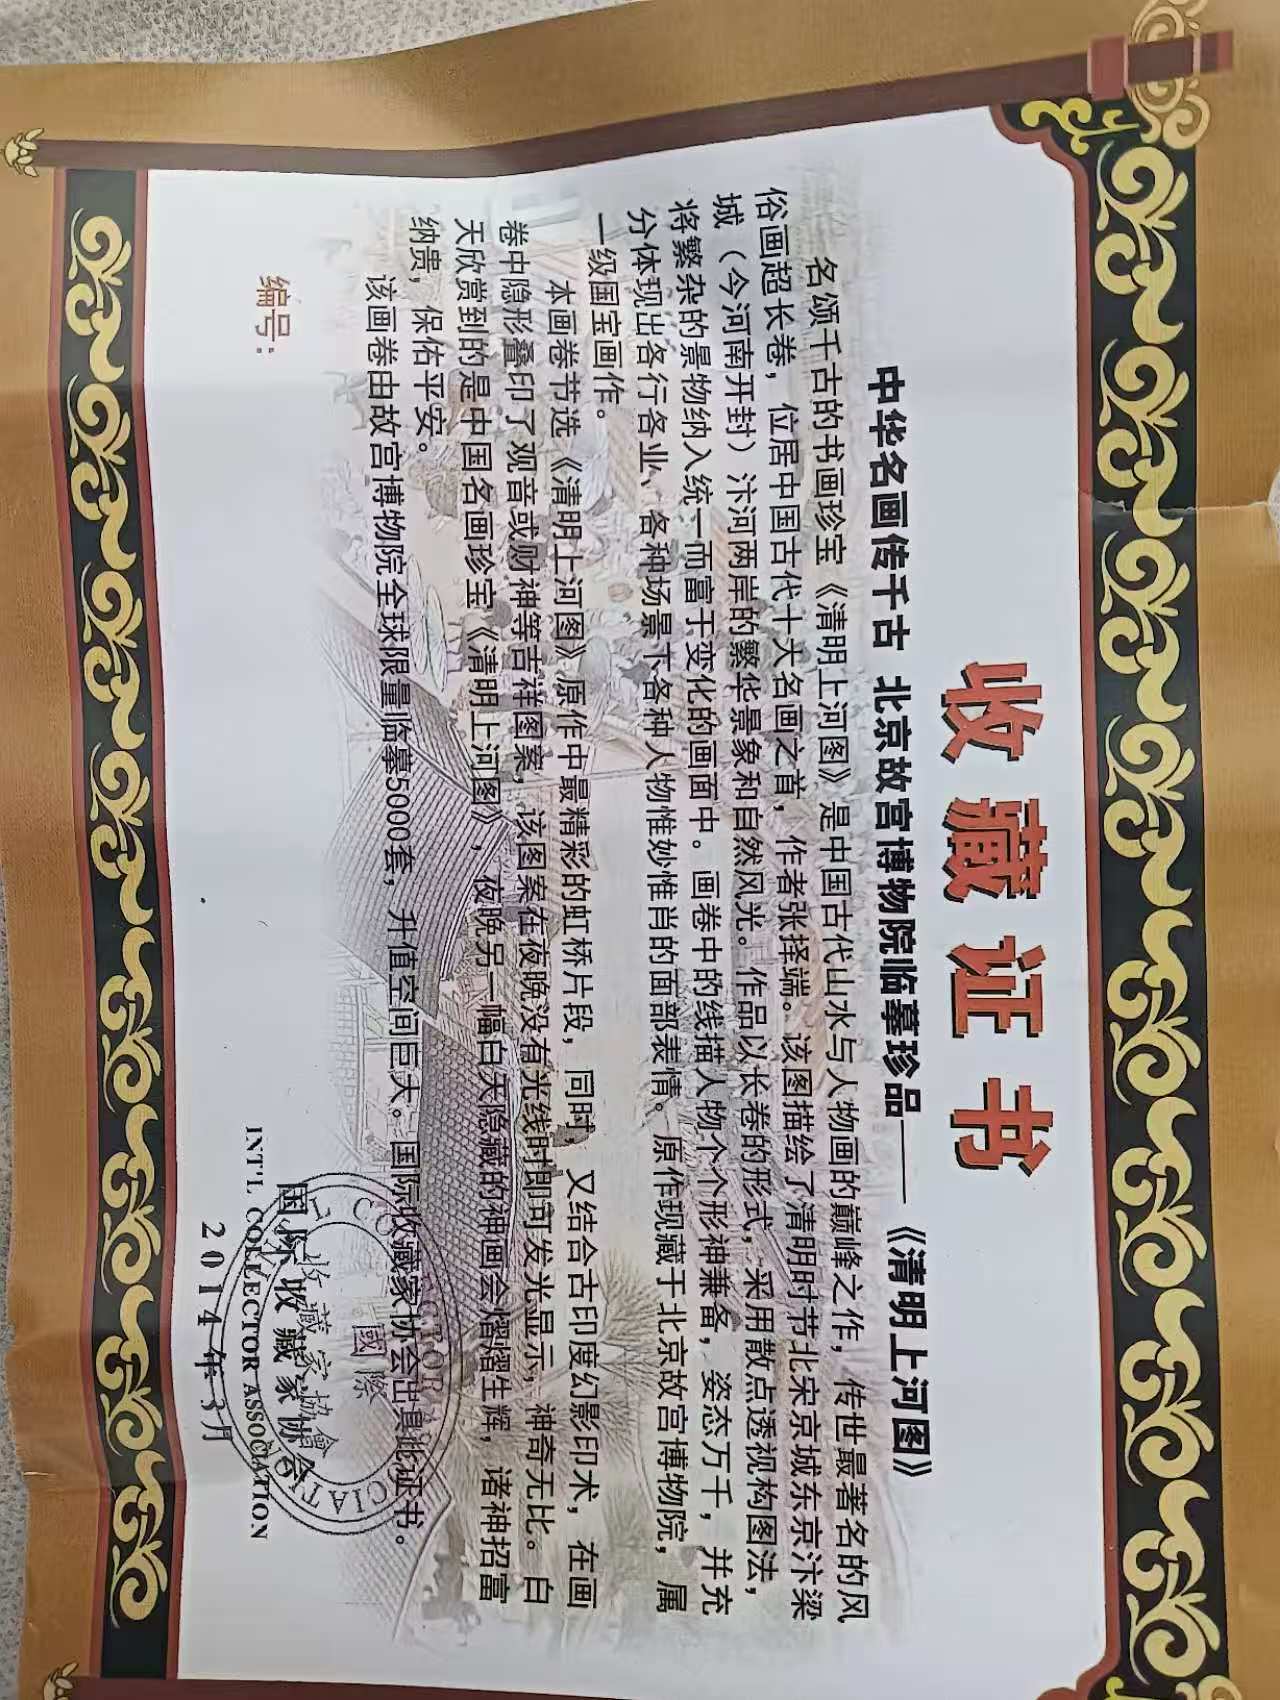 收藏证书
中华名画传千古 北京故宫博物院临摹珍品——《清明上河图》
名颂千古的书画珍宝《清明上河图》是中国古代山水与人物画的巅峰之作，传世最著名的风
俗画超长卷，位居中国古代十大名画之首，作者张择端。该图描绘了清明时节北宋京城东京汴梁
城（今河南开封）汴河两岸的繁华景象和自然风光。作品以长卷的形式，采用散点透视构图法，
将繁杂的景物纳入统一而富于变化的画面中。画卷中的线描人物个个形神兼备，姿态万千，并充
分体现出各行各业、各种场景下各种人物惟妙惟肖的面部表情。原作现藏于北京故宫博物院，属
一级国宝画作。
本画卷节选《清明上河图》原作中最精彩的虹桥片段，同时，又结合古印度幻影印术，在画
卷中隐形叠印了观音或财神等吉祥图案，该图案在夜晚没有光线时即可发光显示，神奇无比。白
天欣赏到的是中国名画珍宝《清明上河图》，夜晚另一幅白天隐藏的神画会熠熠生辉，诸神招富
纳贵，保佑平安。
该画卷由故宫博物院全球限量临摹5000套，升值空间巨大。国际收藏家协会出具此证书。
编号：
國際
收藏家協會
国际收藏家协会
INT'L COLLECTOR ASSOCIATION
2014年3月